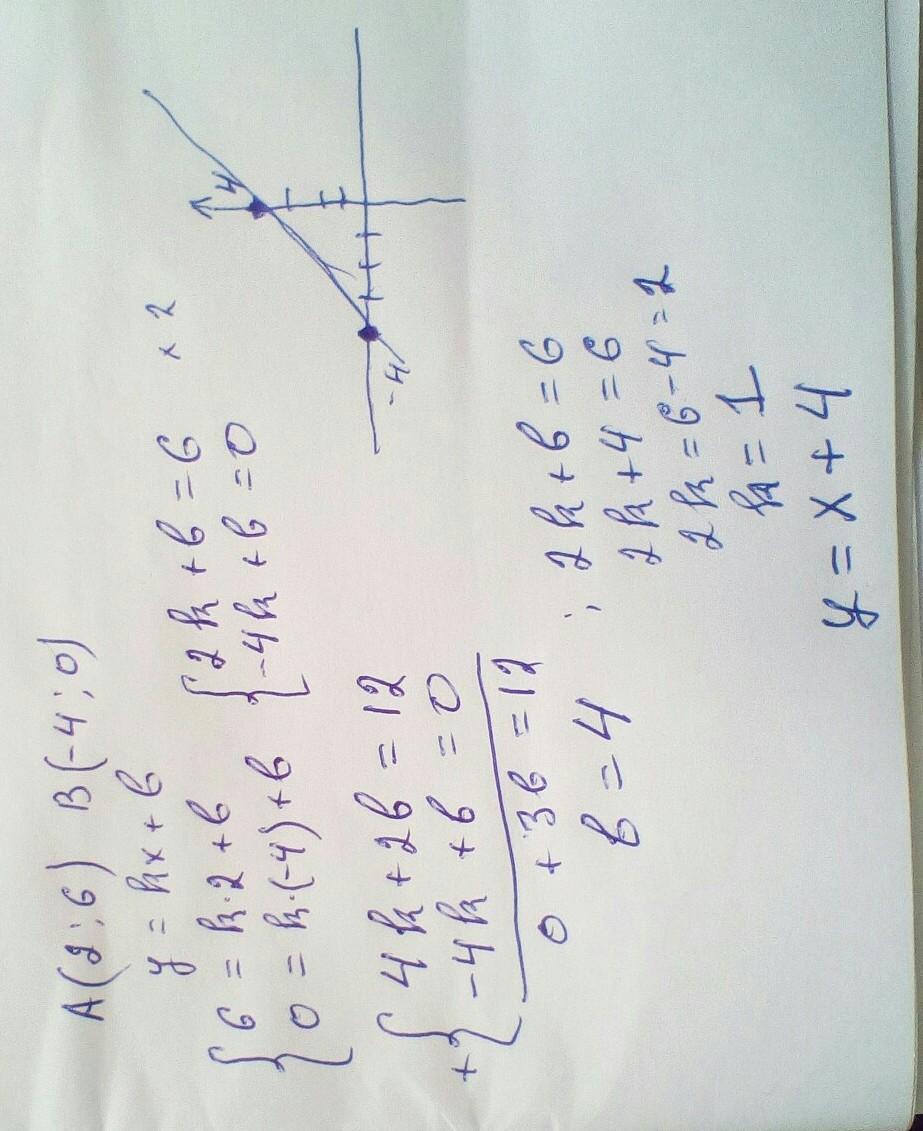 A(2;6) B(-4;0)
y = kx + b
{6 = k·2 + b
{0 = k·(-4) + b
{2k + b = 6 × 2
{-4k + b = 0
+{4k + 2b = 12
{-4k + b = 0
0 + 3b = 12
b = 4
; 2k + b = 6
2k + 4 = 6
2k = 6 - 4 = 2
k = 1
y = x + 4
4
-4